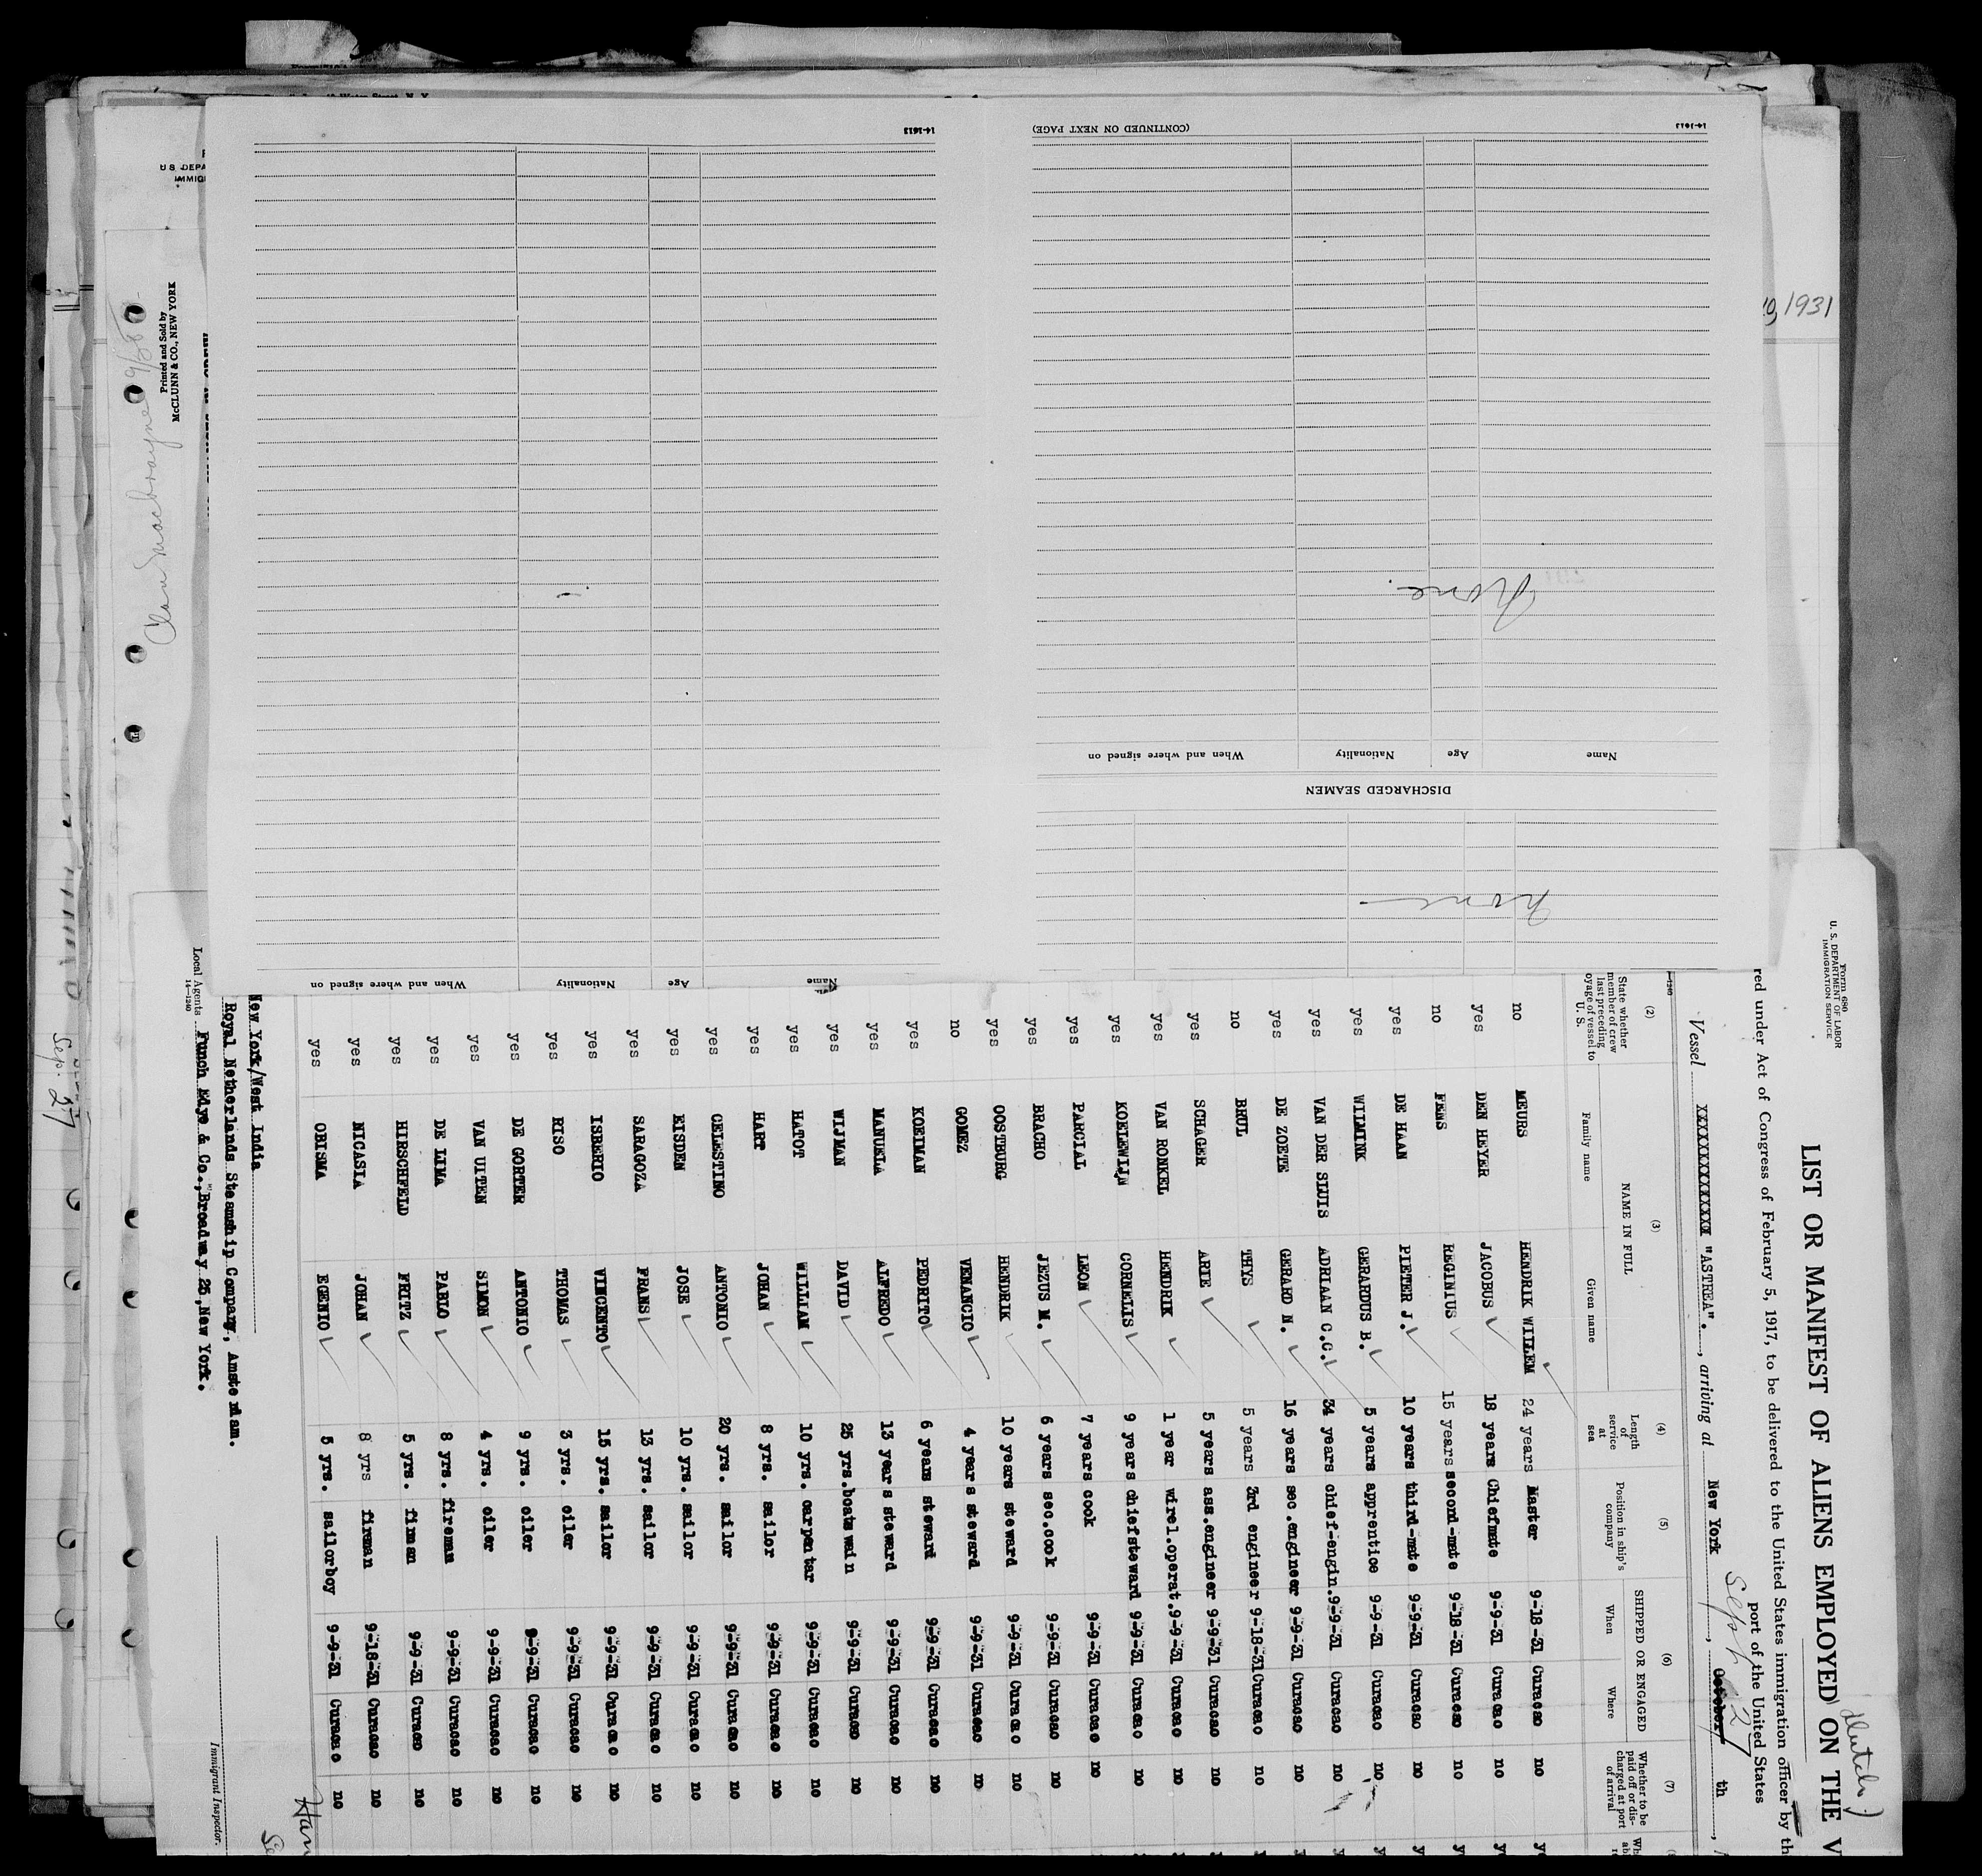 14-1613
(CONTINUED ON NEXT PAGE)
14-1613
None.
Name
Age
Nationality
When and where signed on
DISCHARGED SEAMEN
None
Name
Age
Nationality
When and where signed on
1931
U S DEPA
IMMIG
Printed and Sold by
McCLUNN & CO., NEW YORK
Sep. 27
Form 680
U. S. DEPARTMENT OF LABOR
IMMIGRATION SERVICE
(Dutch)
LIST OR MANIFEST OF ALIENS EMPLOYED ON THE V
red under Act of Congress of February 5, 1917, to be delivered to the United States immigration officer by th
port of the United States
Vessel XXXXXXXXXXXXX "ASTREA"., arriving at New York, Sept 27 October th
(2) (3) (4) (5) (6) (7)
State whether member of crew last preceding voyage of vessel to U. S.
NAME IN FULL
Family name Given name
Length of service at sea
Position in ship's company
SHIPPED OR ENGAGED
When Where
Whether to be paid off or discharged at port of arrival
no MEURS HENDRIK WILLEM 24 years Master 9-18-31 Curacao no
yes DEN HEYER JACOBUS 18 years Chiefmate 9-9-31 Curacao no
no FENS REGINIUS 15 years second-mate 9-18-31 Curacao no
yes DE HAAN PIETER J. 10 years third-mate 9-9-31 Curacao no
yes WILMINK GERARDUS B. 5 years apprentice 9-9-31 Curacao no
yes VAN DER SLUIS ADRIAAN C.C. 34 years chief-engin. 9-9-31 Curacao no
yes DE ZOETE GERARD N. 16 years sec.engineer 9-9-31 Curacao no
no BRUL THYS 5 years 3rd engineer 9-18-31 Curacao no
yes SCHAGER ARIE 5 years ass.engineer 9-9-31 Curacao no
yes VAN RONKEL HENDRIK 1 year wirel.operat. 9-9-31 Curacao no
yes KOELEWIJN CORNELIS 9 years chiefsteward 9-9-31 Curacao no
yes PARCIAL LEON 7 years cook 9-9-31 Curacao no
yes BRACHO JEZUS M. 6 years sec.cook 9-9-31 Curacao no
yes OOSTBURG HENDRIK 10 years steward 9-9-31 Curacao no
no GOMEZ VENANCIO 4 years steward 9-9-31 Curacao no
yes KOEIMAN PEDRITO 6 years steward 9-9-31 Curacao no
yes MANUELA ALFREDO 13 years steward 9-9-31 Curacao no
yes WIJMAN DAVID 25 yrs. boatswain 9-9-31 Curacao no
yes HATOT WILLIAM 10 yrs. carpentar 9-9-31 Curacao no
yes HART JOHAN 8 yrs. sailor 9-9-31 Curacao no
yes CELESTINO ANTONIO 20 yrs. sailor 9-9-31 Curacao no
yes EISDEN JOSE 10 yrs. sailor 9-9-31 Curacao no
yes SARAGOZA FRANS 13 yrs. sailor 9-9-31 Curacao no
yes ISBERIO VINCENTO 15 yrs. sailor 9-9-31 Curacao no
yes RISO THOMAS 3 yrs. oiler 9-9-31 Curacao no
yes DE GORTER ANTONIO 9 yrs. oiler 9-9-31 Curacao no
yes VAN UITEN SIMON 4 yrs. oiler 9-9-31 Curacao no
yes DE LIMA PABLO 8 yrs. fireman 9-9-31 Curacao no
yes HIRSCHFELD FRITZ 5 yrs. fireman 9-9-31 Curacao no
yes NICASIA JOHAN 8 yrs fireman 9-18-31 Curacao no
yes OBISMA EGENIO 5 yrs. sailorboy 9-9-31 Curacao no
New York/West India
Royal Netherlands Steamship Company, Amsterdam.
Local Agents Funch Edye & Co., Broadway 25, New York.
14-1240
Immigrant Inspector.